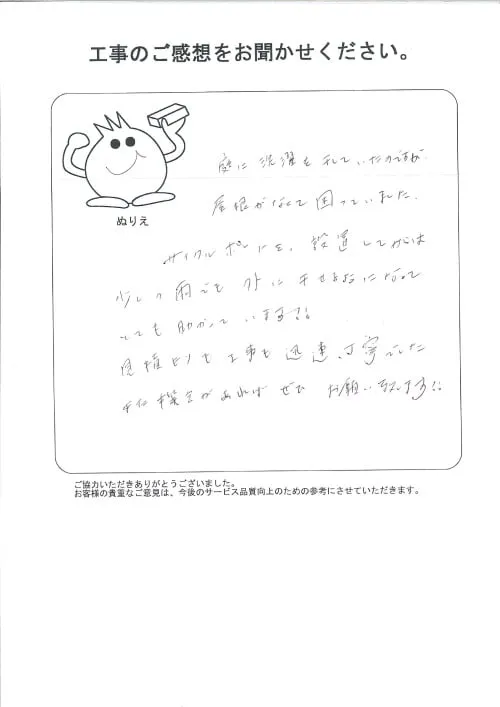 工事のご感想をお聞かせください。
ぬりえ
庭に洗濯を干していたのですが
屋根がなくて困っていました。
サイクルポートを、設置してからは
少しの雨でも外に干せるようになって
とても助かっています!!
見積もりも工事も迅速、丁寧でした
機会があればぜひ お願い致します!!
ご協力いただきありがとうございました。
お客様の貴重なご意見は、今後のサービス品質向上のための参考にさせていただきます。